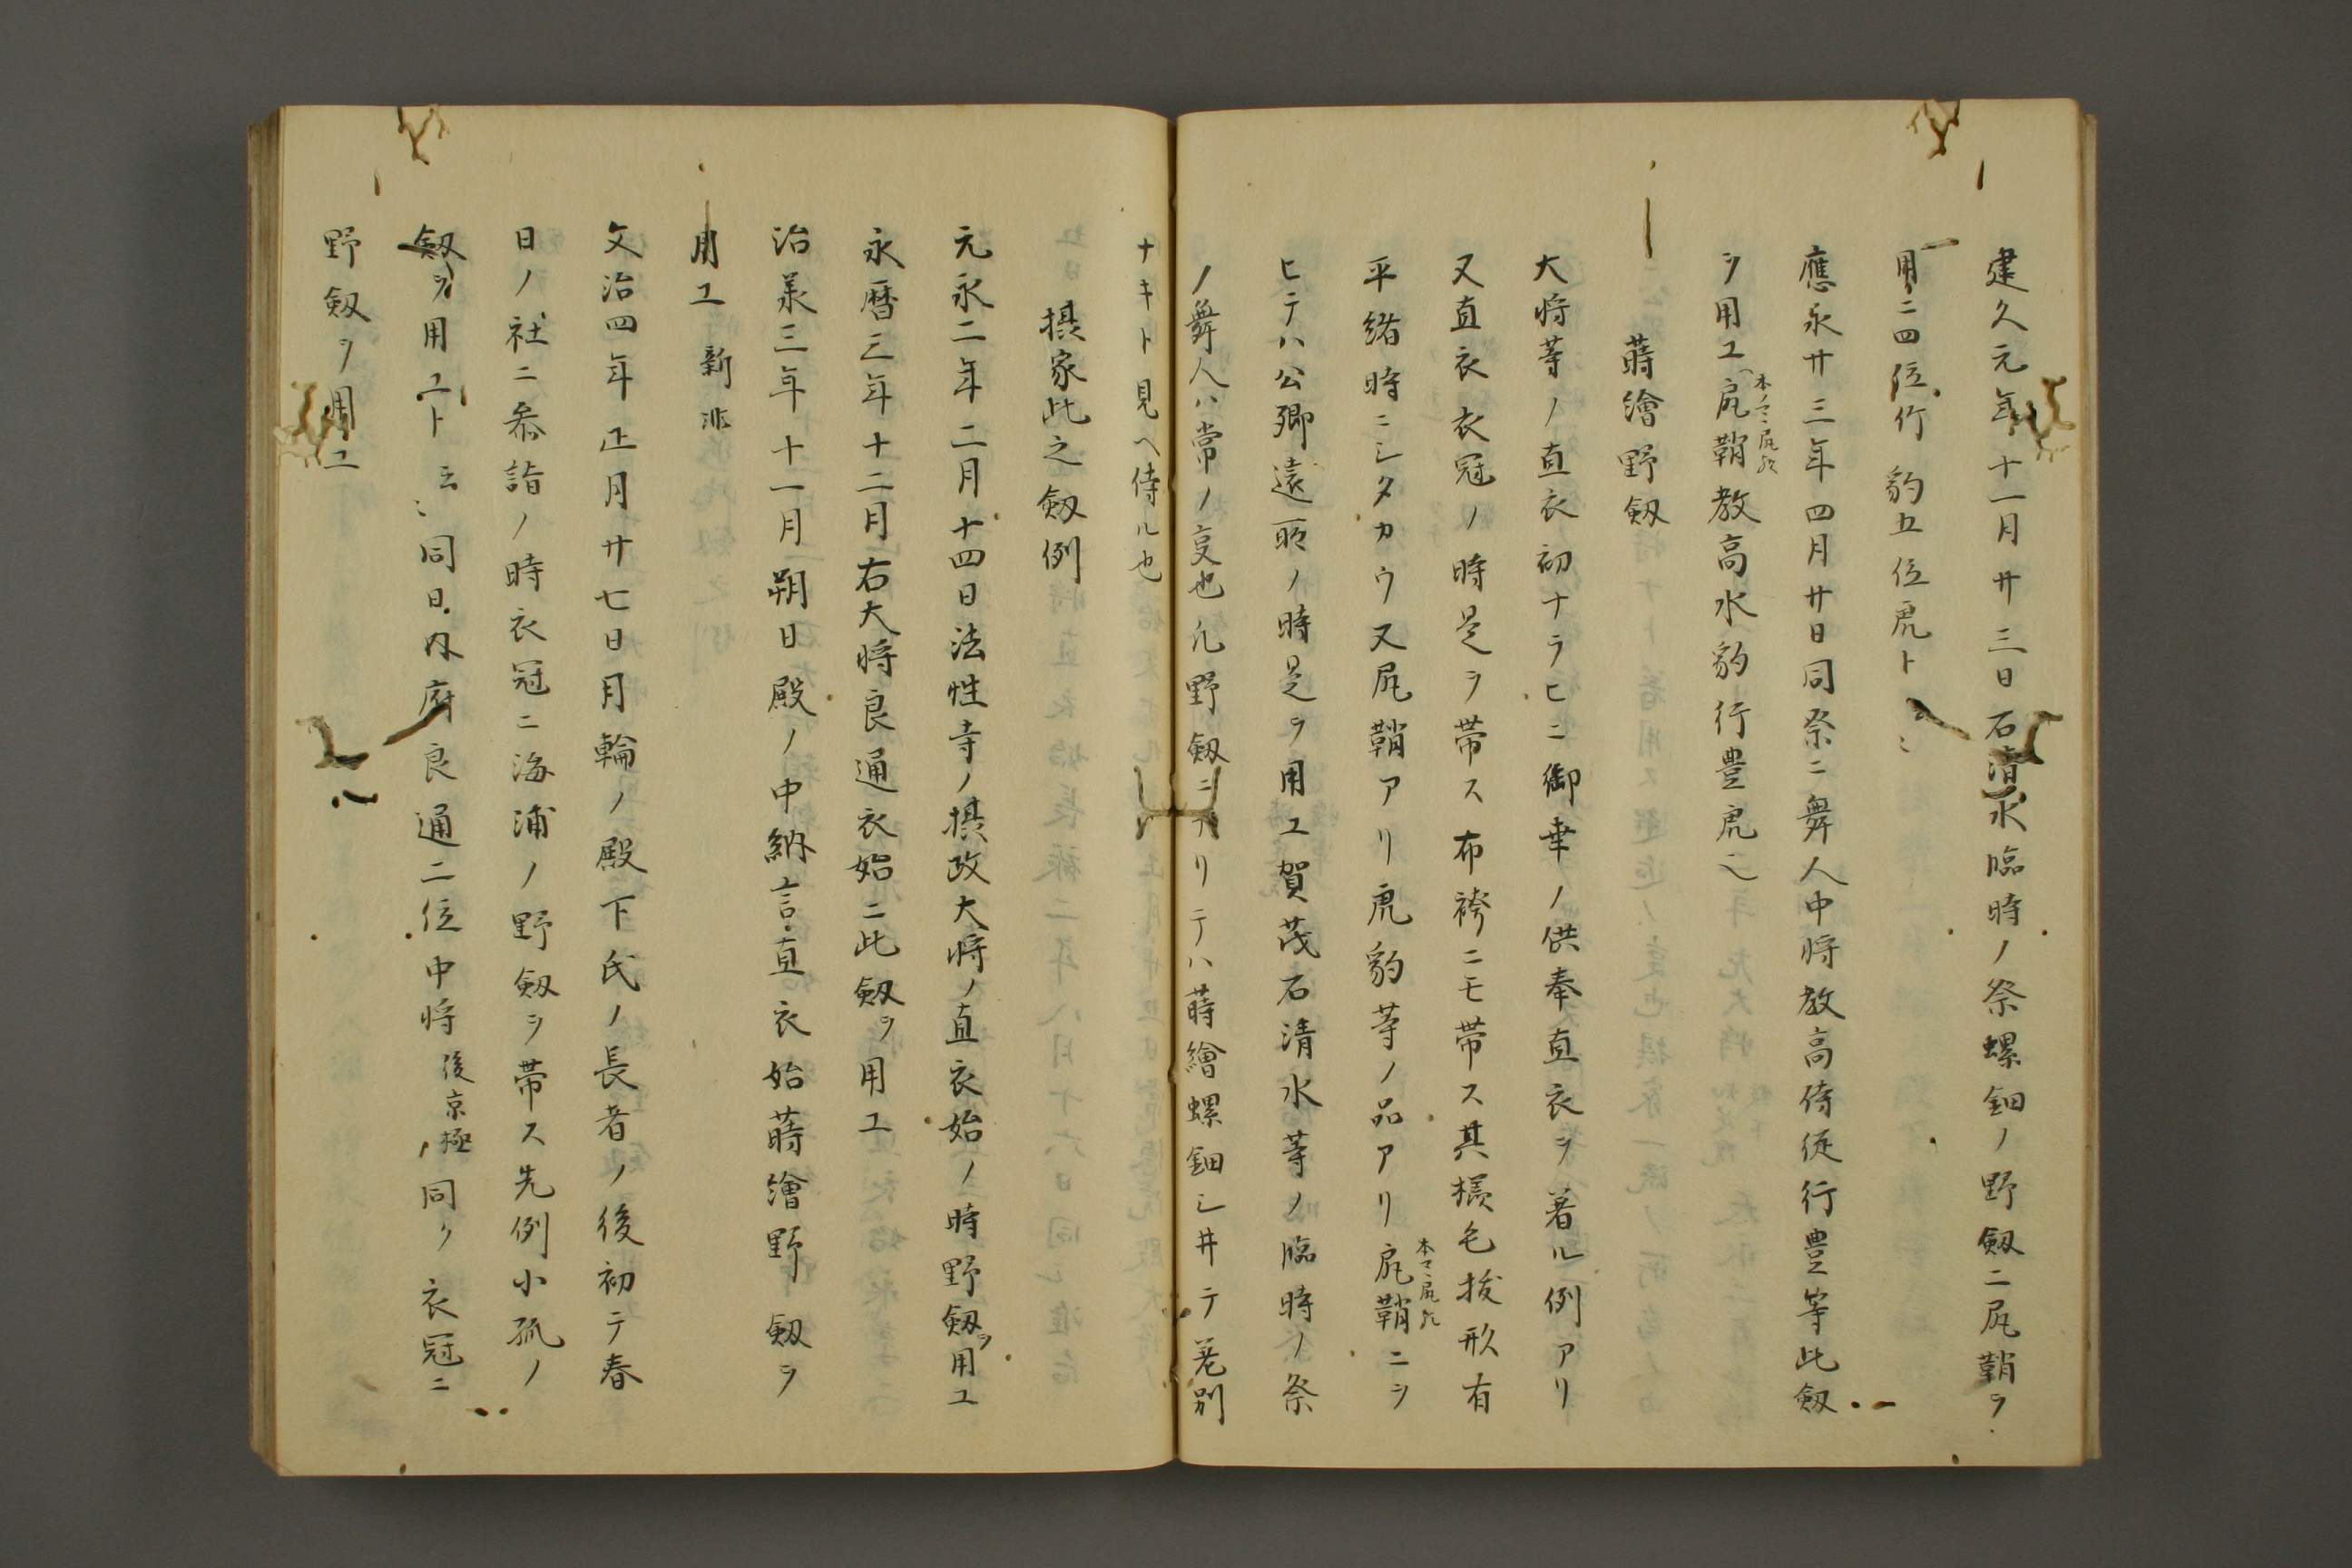 建久元年十一月廿三日石清水臨時ノ祭螺鈿ノ野劔ニ尻鞘ヲ
用ニ四位竹豹五位虎ト云々
應永廿三年四月廿日同祭ニ舞人中将教高侍従行豊等此劔
ヲ用ユ尻鞘教高水豹行豊虎也
本ノマヽ尻歟
蒔繪野劔
大将等ノ直衣初ナラヒニ御幸ノ供奉直衣ヲ著ル例アリ
又直衣衣冠ノ時是ヲ帯ス布袴ニモ帯ス其様毛抜形有
平緒時ニシタカウ又尻鞘アリ虎豹等ノ品アリ尻鞘ニヲ
本マヽ尻歟
ヒテハ公卿遠所ノ時是ヲ用ユ賀茂石清水等ノ臨時ノ祭
ノ舞人ハ常ノ支也凡野劔ニヲリテハ蒔繪螺鈿シ井テ差別
ナキト見ヘ侍ル也
摂家此之劔例
元永二年二月十四日法性寺ノ摂政大将ノ直衣始ノ時野劔ヲ用ユ
永暦三年十二月右大将良通衣始ニ此劔ヲ用ユ
治承三年十一月朔日殿ノ中納言直衣始蒔繪野劔ヲ
用ユ 新
文治四年正月廿七日月輪ノ殿下氏ノ長者ノ後初テ春
日ノ社ニ参詣ノ時衣冠ニ海浦ノ野劔ヲ帯ス先例小狐ノ
劔ヲ用ユト云々同日内府良通二位中将後京極同ク衣冠ニ
野劔ヲ用ユ